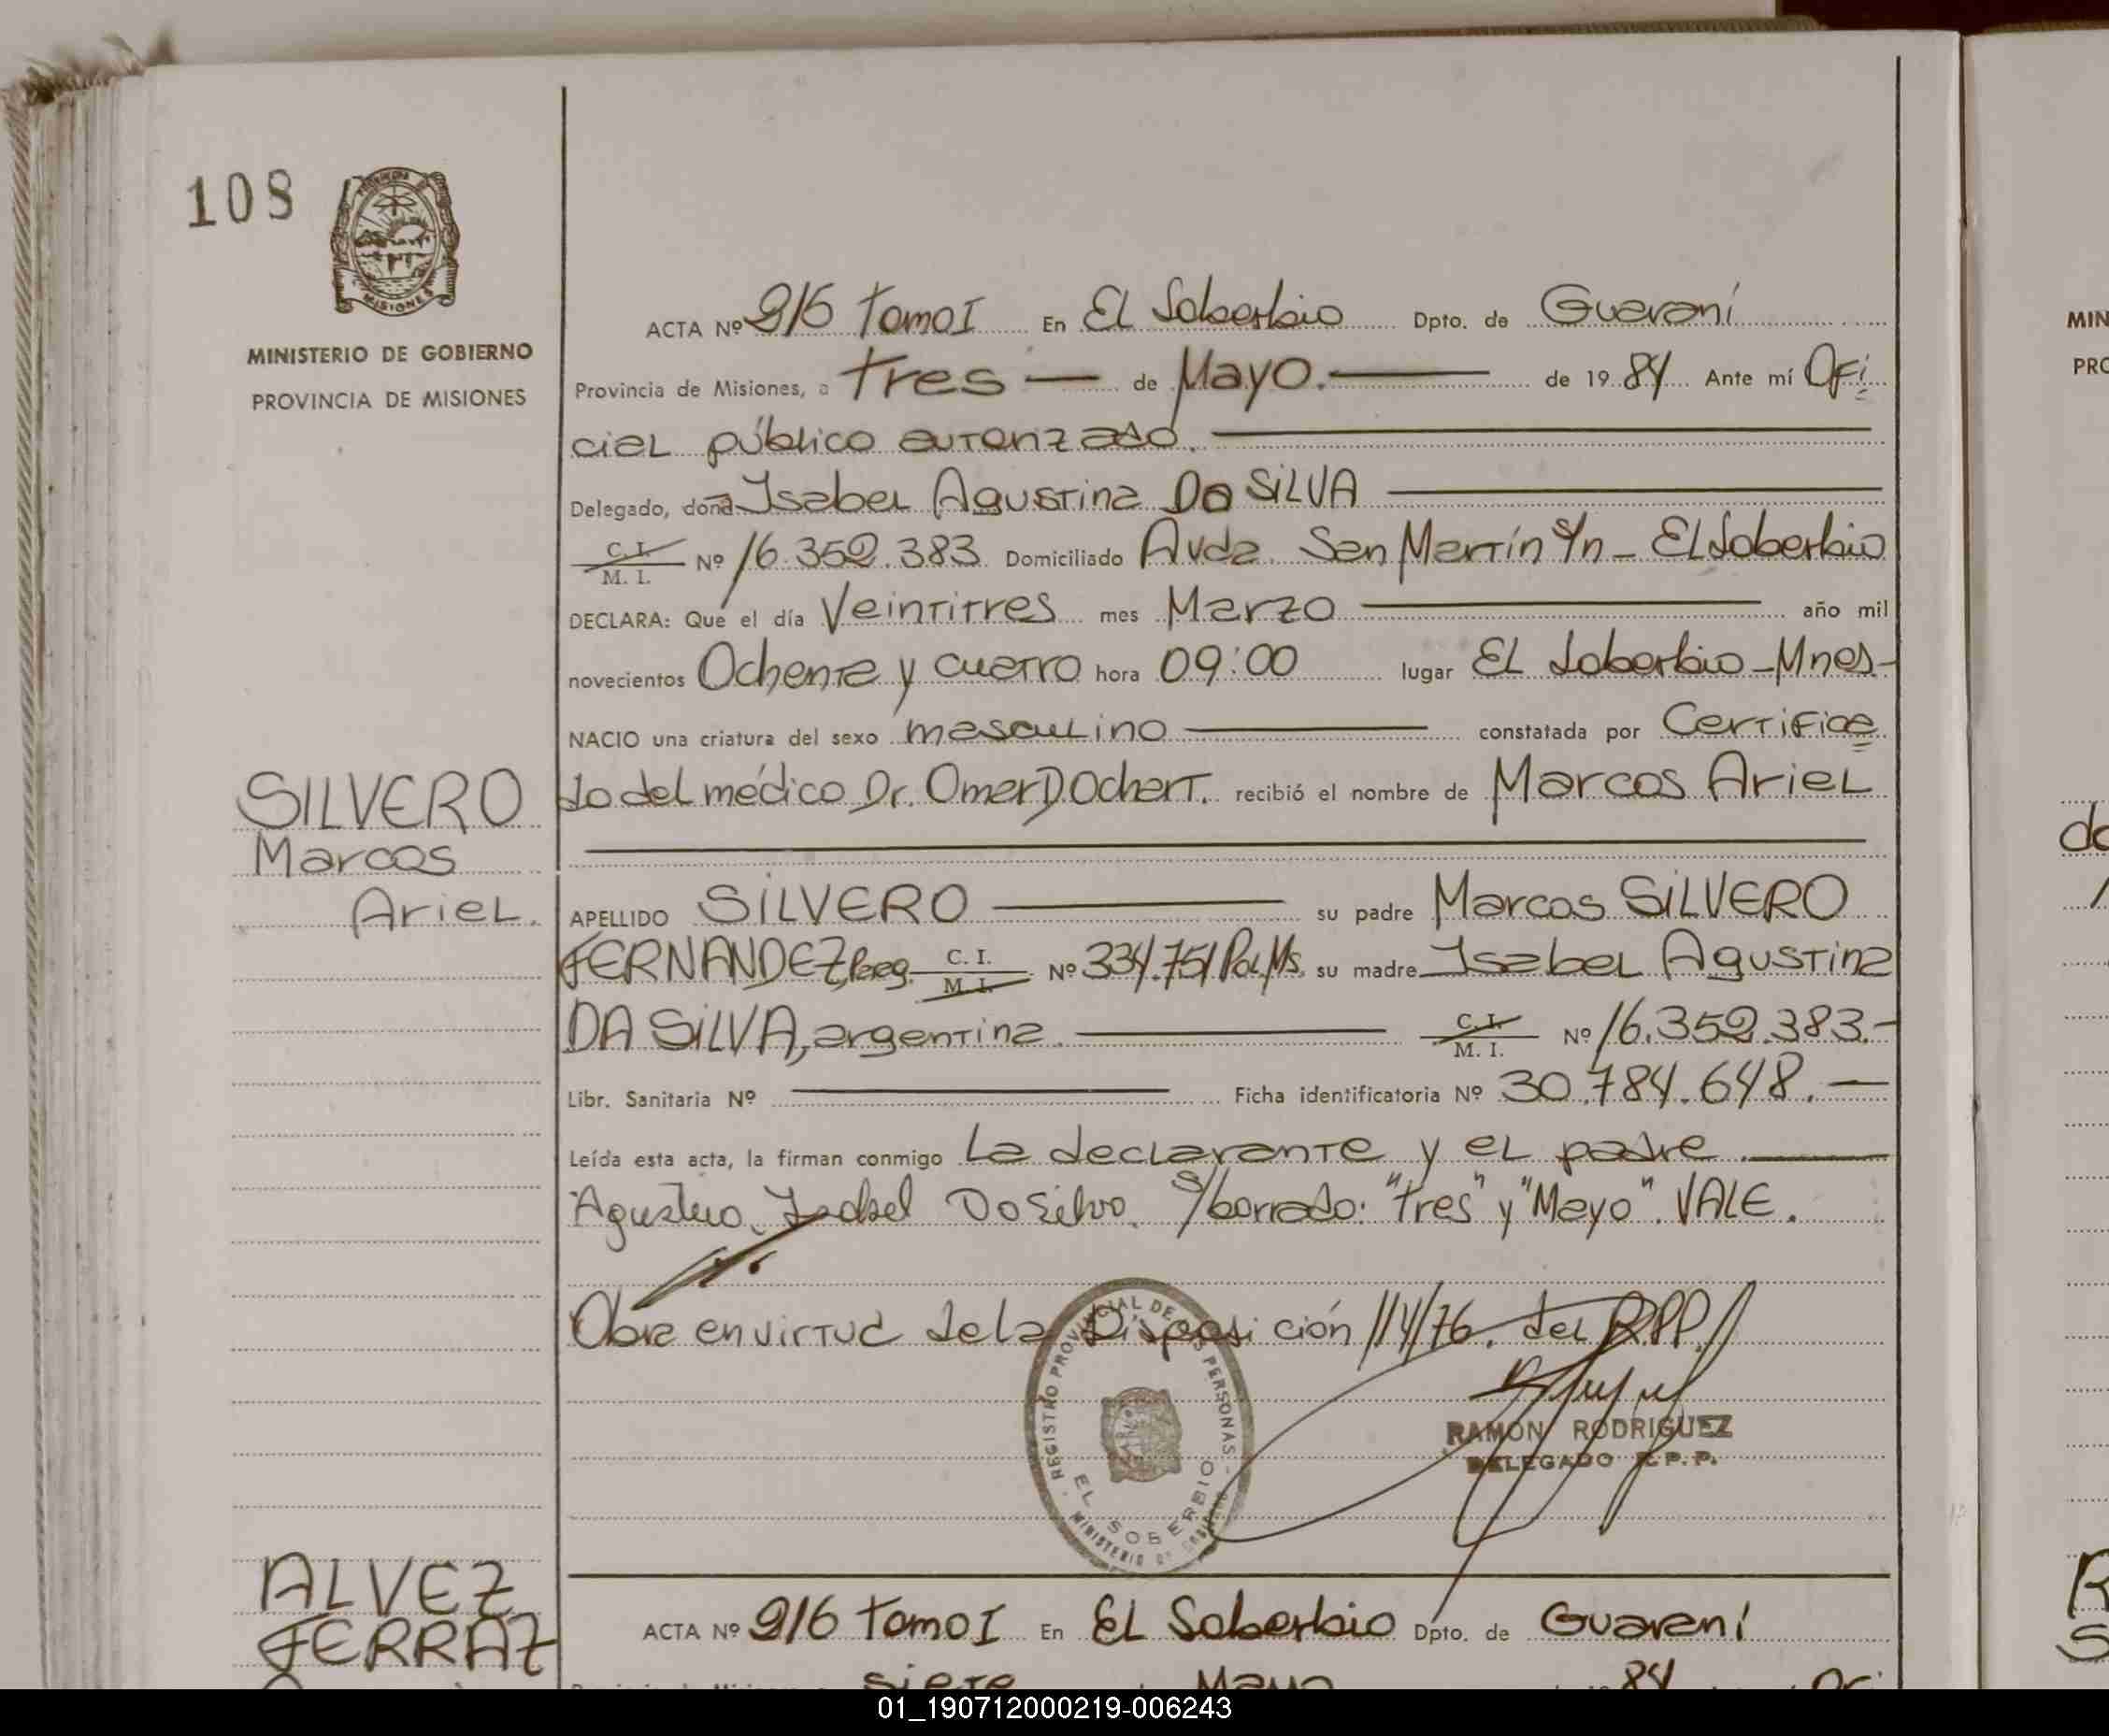 108
MISIONES
MINISTERIO DE GOBIERNO
PROVINCIA DE MISIONES
ACTA Nº 215 Tomo I En El Soberbio Dpto. de Guaraní
Provincia de Misiones, a tres — de Mayo. — de 1984 Ante mí Ofi
cial público autorizado.
Delegado, doña Isabel Agustina Da SILVA
C. I. M. I. Nº 16.352.383 Domiciliado Avda. San Martín s/n - El Soberbio
DECLARA: Que el día Veintitres mes Marzo año mil
novecientos Ochenta y cuatro hora 09:00 lugar El Soberbio-Mnes-
NACIO una criatura del sexo masculino constatada por Certifica
do del médico Dr. Omar D. Ochart. recibió el nombre de Marcos Ariel
SILVERO
Marcos
Ariel.
APELLIDO SILVERO su padre Marcos SILVERO
FERNANDEZ, Parag. C. I. M. I. Nº 334.751 Pol. Ms. su madre Isabel Agustina
DA SILVA, argentina. C. I. M. I. Nº 16.352.383.-
Libr. Sanitaria Nº Ficha identificatoria Nº 30.784.648. —
Leída esta acta, la firman conmigo La declarante y el padre
Agustina Isabel Da Silva. s/borrado: "tres" y "Mayo". VALE.
Obra en virtud de la Disposición 114/76. del RPP.
REGISTRO PROVINCIAL DE LAS PERSONAS - MINISTERIO DE GOBIERNO
EL SOBERBIO
RAMON RODRIGUEZ
DELEGADO R.P.P.
ALVEZ
FERRAZ
ACTA Nº 216 Tomo I En El Soberbio Dpto. de Guaraní
siete Mayo 84
MIN
PRO
do
01_190712000219-006243